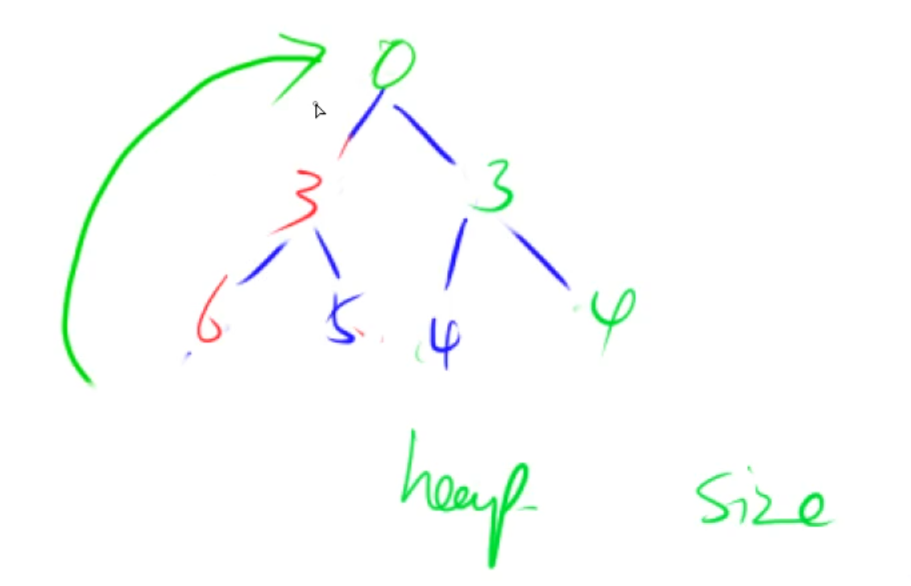 0
3 3
6 5 4 4
heap size